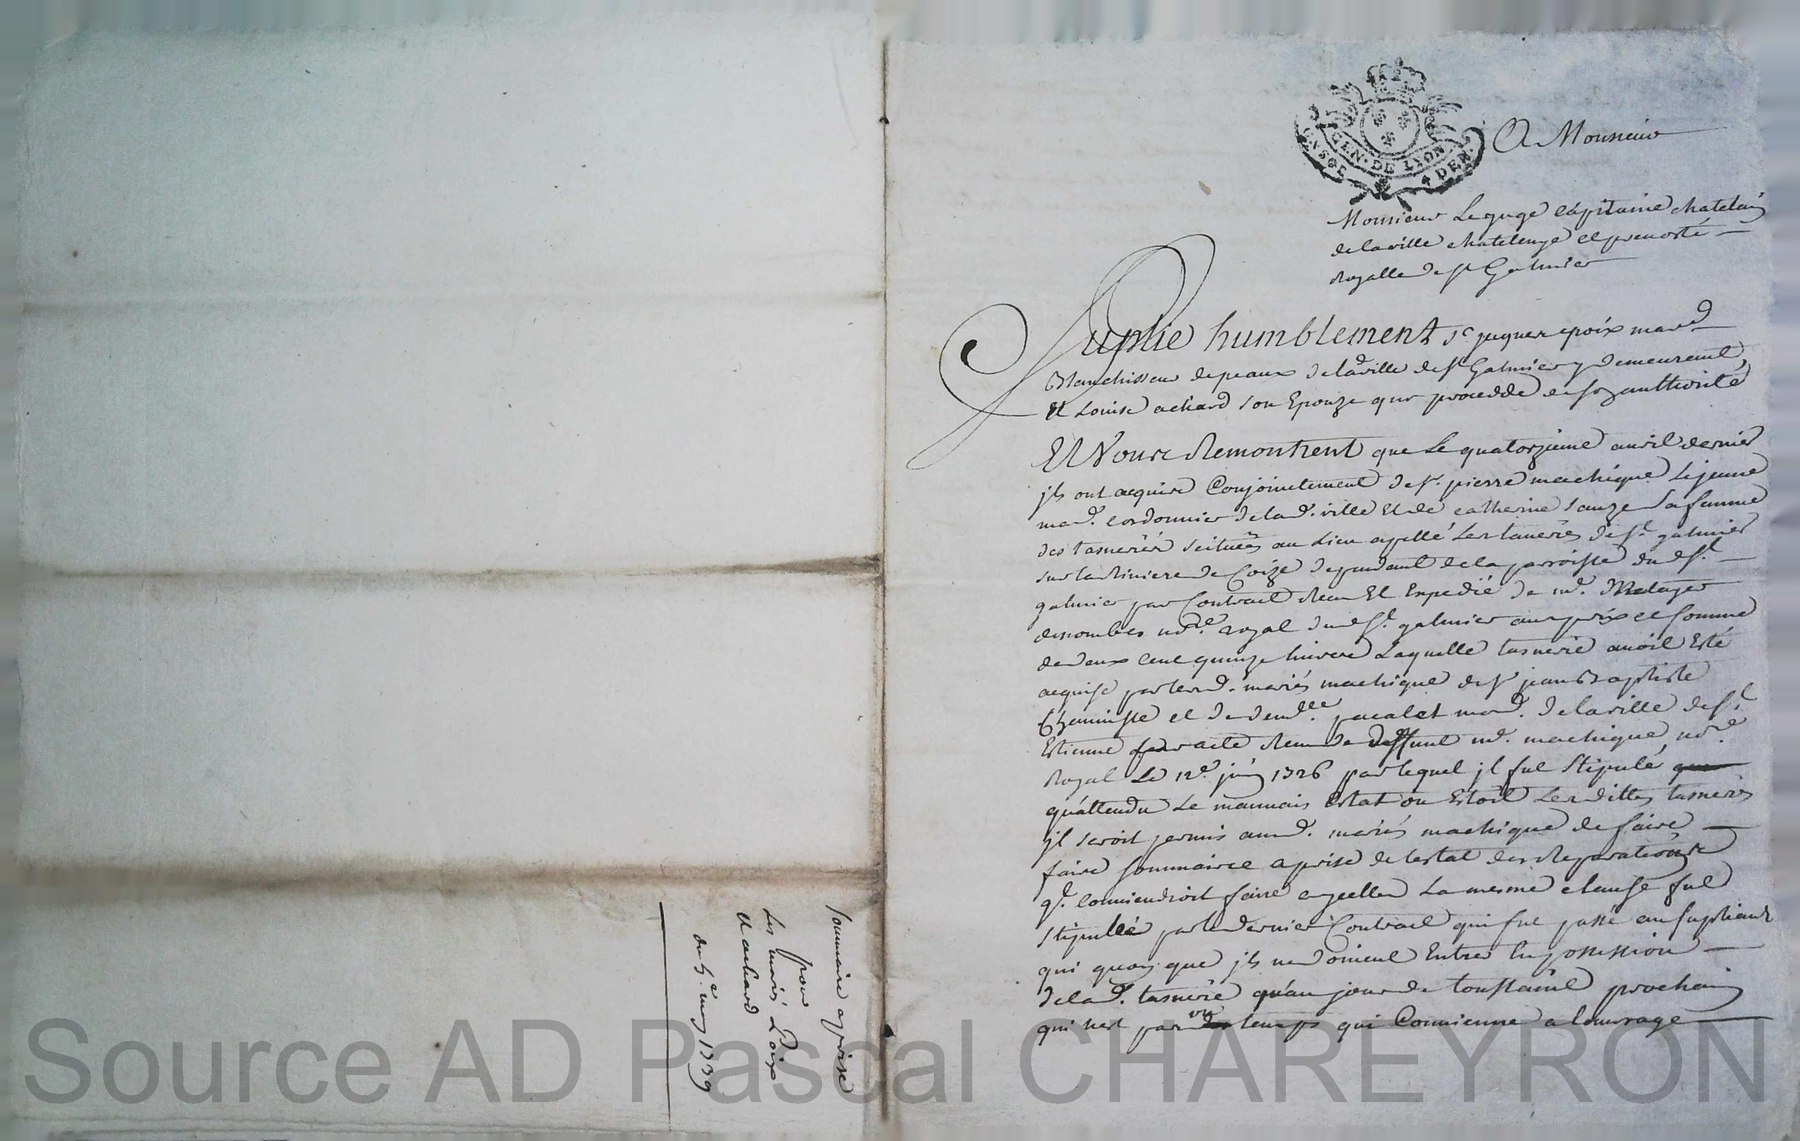 GEN · DE LYON
A Monsieur
Monsieur Le juge capitaine chatelain
de la ville chatelenye et prevosté
Royalle de st Galmier
Suplie humblement sr jaques époix mard
Blanchisseur de peaux de lad ville de st Galmier y demeurant
Et Louise achard son Epouze qui procedde de son authorité
Et Vous Remontrent que Le quatorzieme avril dernier
jls ont acquis Conjointement de sr. pierre machique Lejeune
mard. cordonnier de lad. ville Et de catherine sauze sa femme
des tanneries scituées au Lieu apellé Les taneries de st galmier
sur la Riviere de Coize dependant de la parroisse dud st
galmier par Contract Reçu Et Expedié de me.
descombes nore. royal dud st. galmier au prix et somme
de deux cent quinze livres Laquelle tannerie avoit Esté
acquise par lesd. mariés machique de sr jean Baptiste
et de demlle. pacalet mard. de la ville de st.
Estienne par acte Reçu de deffunt me. machique nore.
Royal Le 12e. juin 1726 par lequel jl fut stipulé que
qu'attendu Le mauvais Estat ou Estoit Lesdittes tanneries
jl seroit permis aud. mariés machique de faire
faire sommaire aprise de lestat des Reparations
ql. conviendroit faire a jcelles La mesme clause fut
stipullée par le dernier Contract qui fut passé au supliant
qui quoy que jls ne doivent Entrer En possession
de lad. tannerie qu'au jour de toussaint prochain
qui nest pas un temps qui Convienne a louvrage
sommaire aprise
pour
Les mariés Poix
et achard
du 5e may 1739
Source AD Pascal CHAREYRON